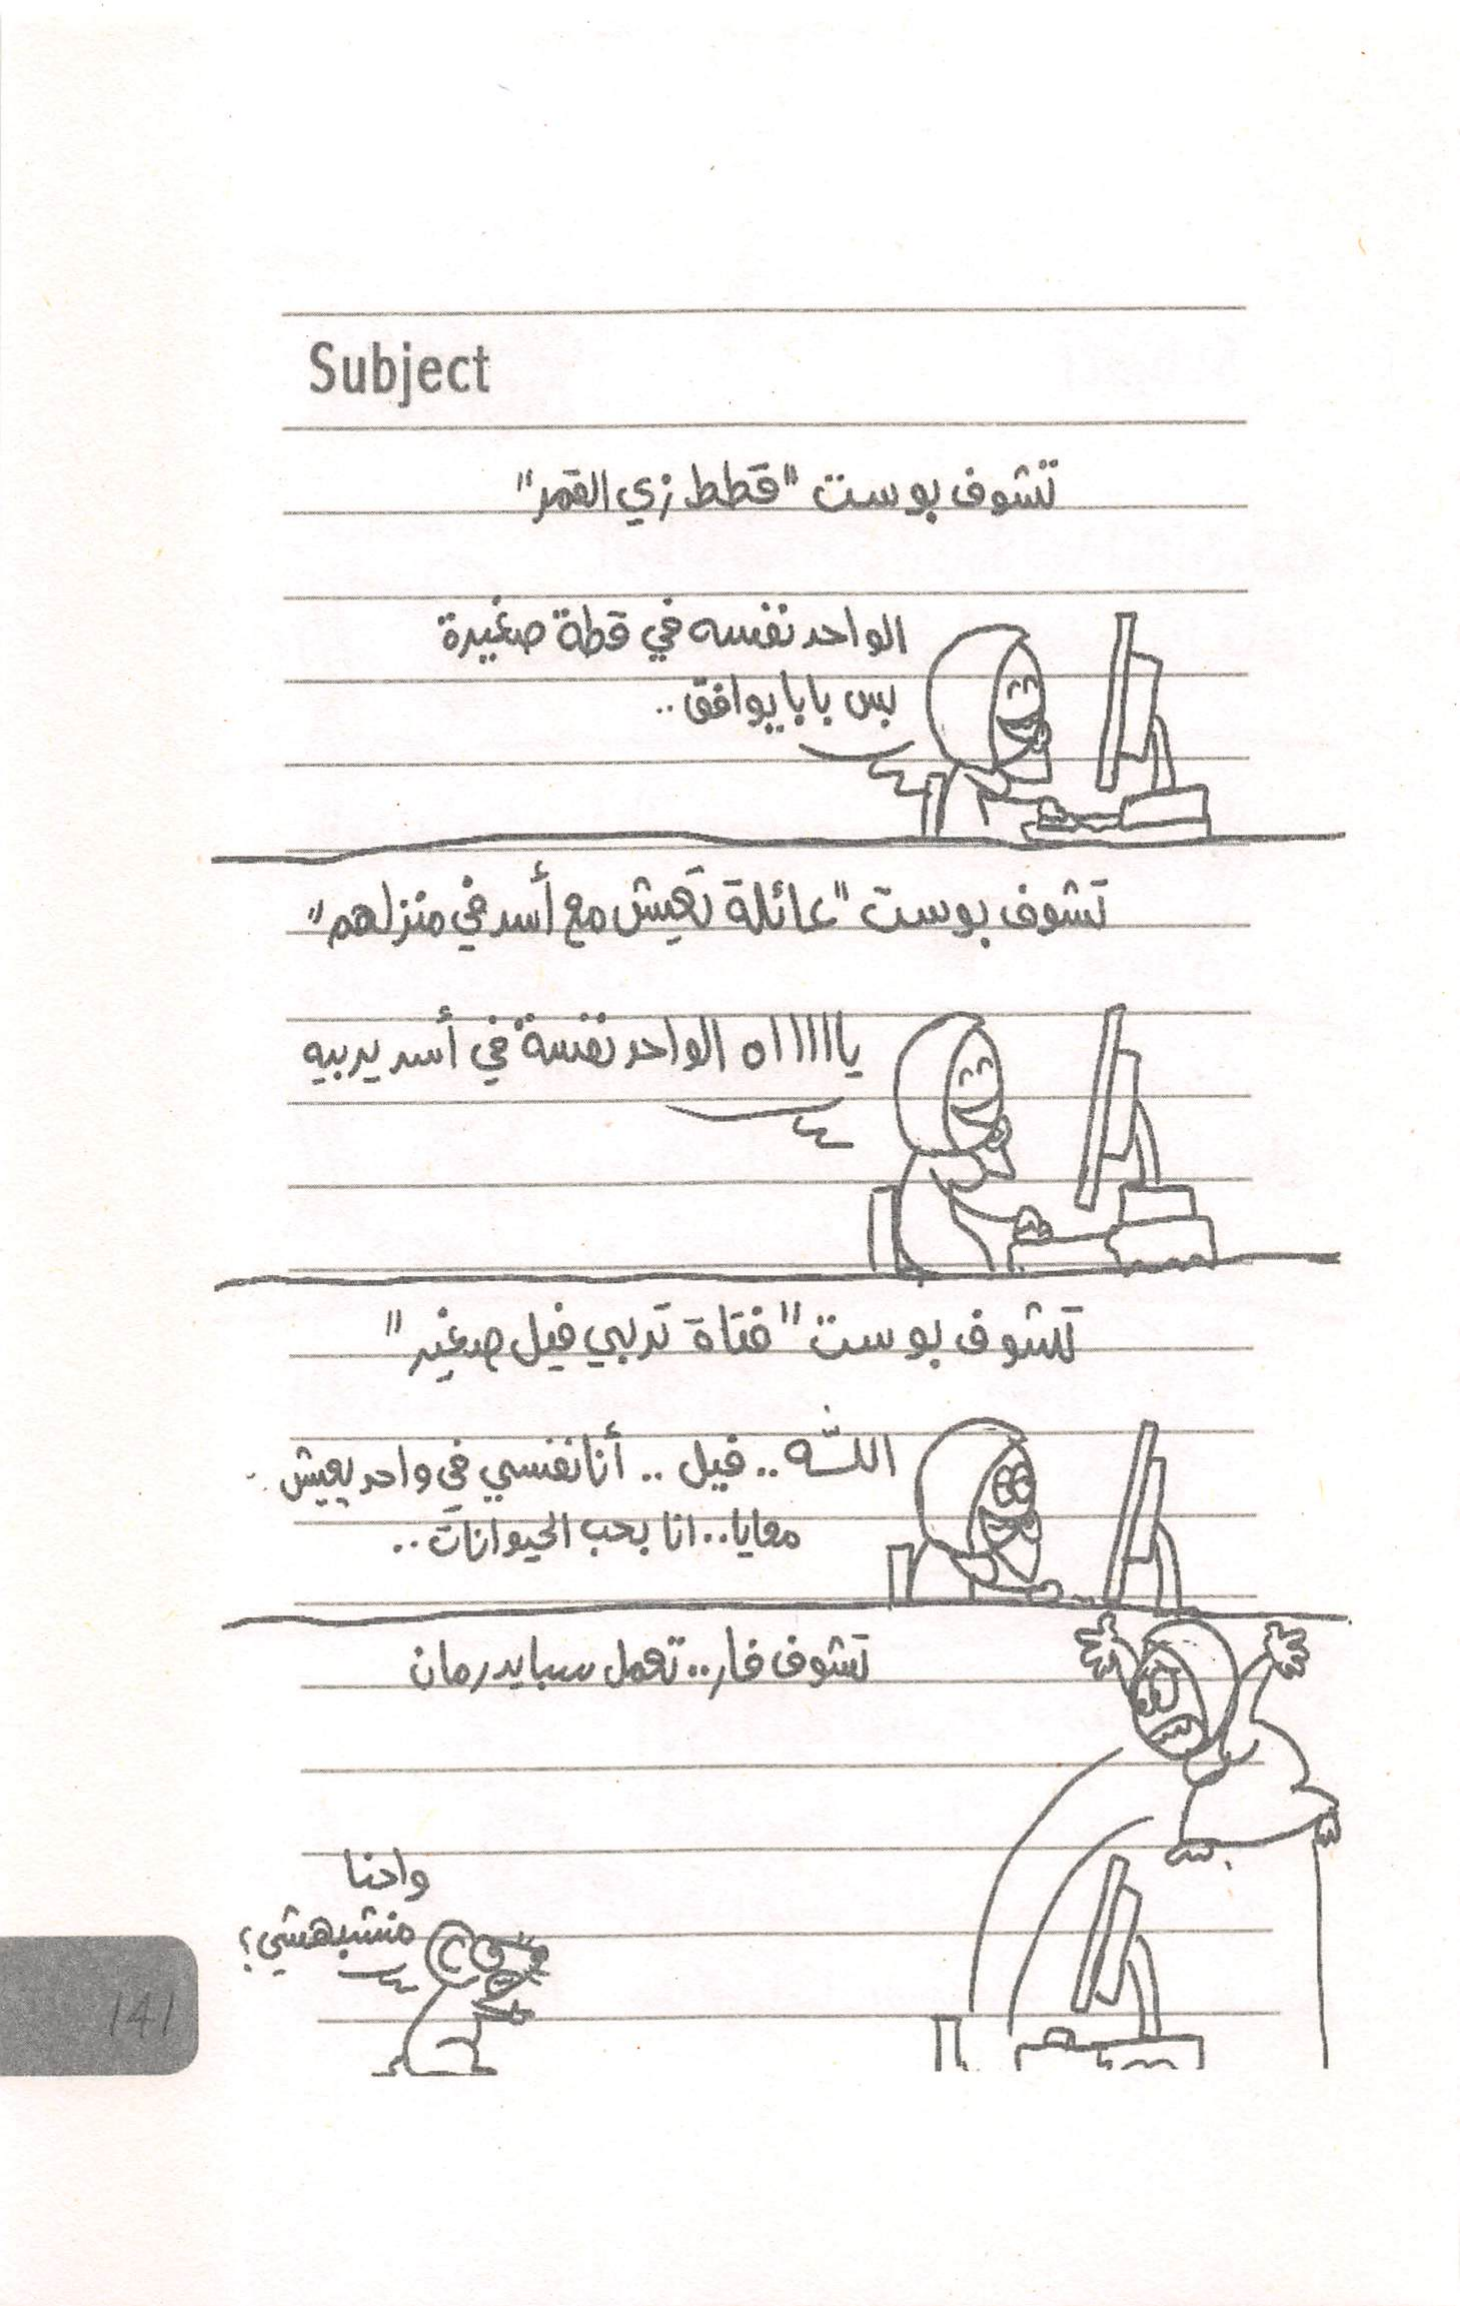 Subject
تشوف بوست "قطط زي القمر"
الواحد نفسه في قطة صغيرة
بس بابا يوافق..
تشوف بوست "عائلة تعيش مع أسد في منزلهم"
يااااااه الواحد نفسة في أسد يربيه
تشوف بوست "فتاة تربي فيل صغير"
اللّه.. فيل.. أنا نفسي في واحد يعيش
معايا.. انا بحب الحيوانات..
تشوف فار.. تعمل سبايدرمان
واحنا
منشبهشي؟
141